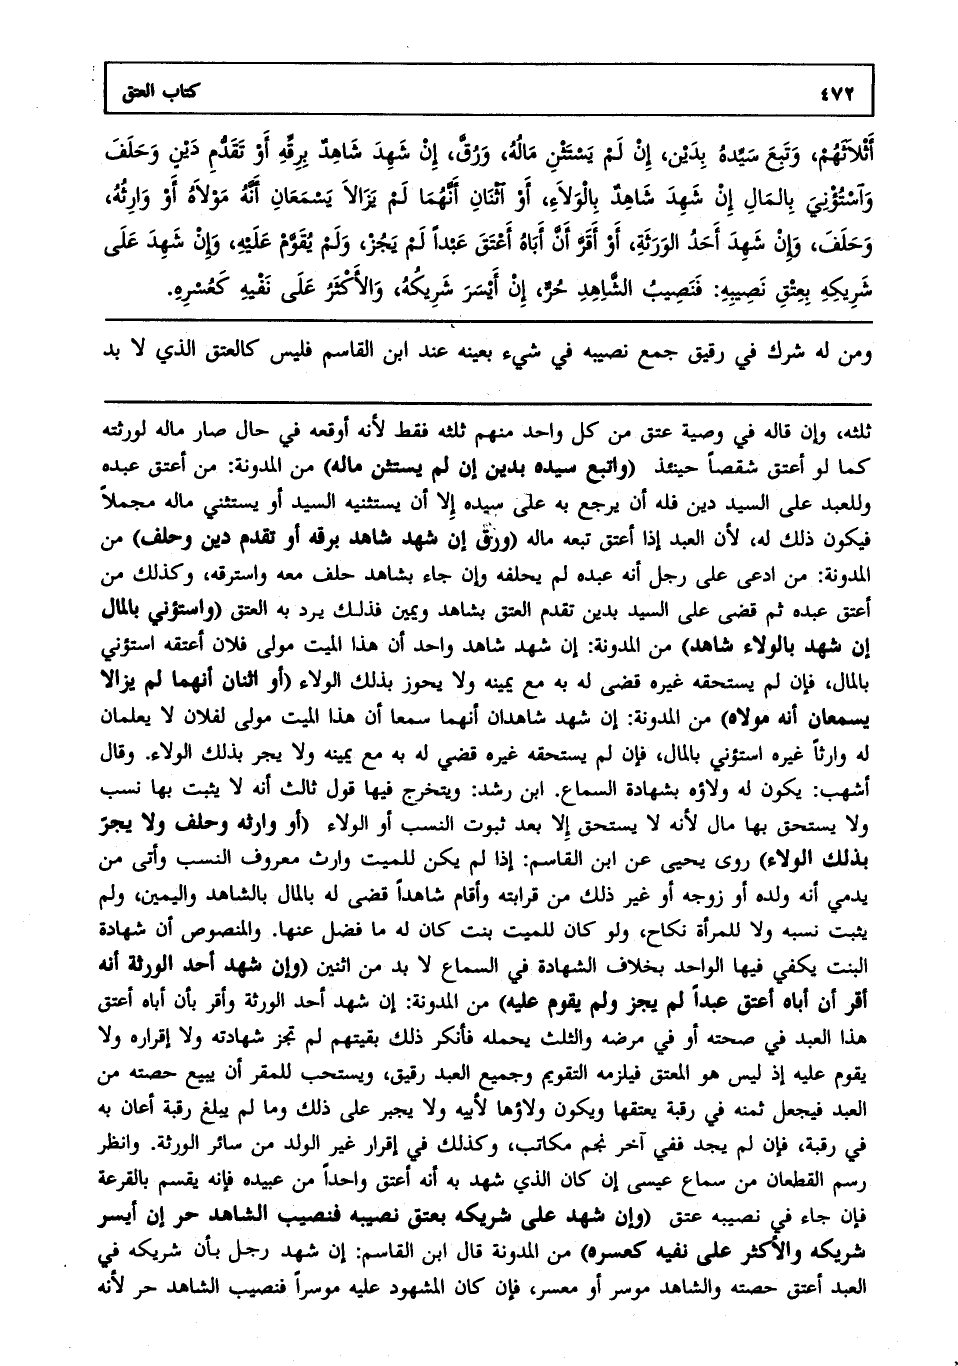 ٤٧٢
كتاب العتق
أَثْلاَثَهُمْ، وَتَبِعَ سَيِّدَهُ بِدَيْنٍ، إِنْ لَمْ يَسْتَثْنِ مَالَهُ، وَرُقَّ، إِنْ شَهِدَ شَاهِدٌ بِرِقِّهِ أَوْ تَقَدُّمِ دَيْنٍ وَحَلَفَ
وَآسْتُؤْنِيَ بِالمَالِ إِنْ شَهِدَ شَاهِدٌ بِالْوَلاَءِ، أَوْ آثْنَانِ أَنَّهُمَا لَمْ يَزَالاَ يَسْمَعَانِ أَنَّهُ مَوْلاَهُ أَوْ وَارِثُهُ،
وَحَلَفَ، وَإِنْ شَهِدَ أَحَدُ الوَرَثَةِ، أَوْ أَقَرَّ أَنَّ أَبَاهُ أَعْتَقَ عَبْداً لَمْ يَجُزْ، وَلَمْ يُقَوَّمْ عَلَيْهِ، وَإِنْ شَهِدَ عَلَى
شَرِيكِهِ بِعِتْقِ نَصِيبِهِ: فَنَصِيبُ الشَّاهِدِ حُرٌّ، إِنْ أَيْسَرَ شَرِيكُهُ، وَالأَكْثَرُ عَلَى نَفْيِهِ كَعُسْرِهِ.
ومن له شرك في رقيق جمع نصيبه في شيء بعينه عند ابن القاسم فليس كالعتق الذي لا بد
ثلثه، وإن قاله في وصية عتق من كل واحد منهم ثلثه فقط لأنه أوقعه في حال صار ماله لورثته
كما لو أعتق شقصاً حينئذ (واتبع سيده بدين إن لم يستثن ماله) من المدونة: من أعتق عبده
وللعبد على السيد دين فله أن يرجع به على سيده إلا أن يستثنيه السيد أو يستثني ماله مجملاً
فيكون ذلك له، لأن العبد إذا أعتق تبعه ماله (ورق إن شهد شاهد برقه أو تقدم دين وحلف) من
المدونة: من ادعى على رجل أنه عبده لم يحلفه وإن جاء بشاهد حلف معه واسترقه، وكذلك من
أعتق عبده ثم قضى على السيد بدين تقدم العتق بشاهد ويمين فذلك يرد به العتق (واستؤني بالمال
إن شهد بالولاء شاهد) من المدونة: إن شهد شاهد واحد أن هذا الميت مولى فلان أعتقه استؤني
بالمال، فإن لم يستحقه غيره قضى له به مع يمينه ولا يحوز بذلك الولاء (أو اثنان أنهما لم يزالا
يسمعان أنه مولاه) من المدونة: إن شهد شاهدان أنهما سمعا أن هذا الميت مولى لفلان لا يعلمان
له وارثاً غيره استؤني بالمال، فإن لم يستحقه غيره قضي له به مع يمينه ولا يجر بذلك الولاء. وقال
أشهب: يكون له ولاؤه بشهادة السماع. ابن رشد: ويتخرج فيها قول ثالث أنه لا يثبت بها نسب
ولا يستحق بها مال لأنه لا يستحق إلا بعد ثبوت النسب أو الولاء (أو وارثه وحلف ولا يجرّ
بذلك الولاء) روى يحيى عن ابن القاسم: إذا لم يكن للميت وارث معروف النسب وأتى من
يدمي أنه ولده أو زوجه أو غير ذلك من قرابته وأقام شاهداً قضى له بالمال بالشاهد واليمين، ولم
يثبت نسبه ولا للمرأة نكاح، ولو كان للميت بنت كان له ما فضل عنها. والمنصوص أن شهادة
البنت يكفي فيها الواحد بخلاف الشهادة في السماع لا بد من اثنين (وإن شهد أحد الورثة أنه
أقر أن أباه أعتق عبداً لم يجز ولم يقوم عليه) من المدونة: إن شهد أحد الورثة وأقر بأن أباه أعتق
هذا العبد في صحته أو في مرضه والثلث يحمله فأنكر ذلك بقيتهم لم تجز شهادته ولا إقراره ولا
يقوم عليه إذ ليس هو المعتق فيلزمه التقويم وجميع العبد رقيق، ويستحب للمقر أن يبيع حصته من
العبد فيجعل ثمنه في رقبة يعتقها ويكون ولاؤها لأبيه ولا يجبر على ذلك وما لم يبلغ رقبة أعان به
في رقبة، فإن لم يجد ففي آخر نجم مكاتب، وكذلك في إقرار غير الولد من سائر الورثة. وانظر
رسم القطعان من سماع عيسى إن كان الذي شهد به أنه أعتق واحداً من عبيده فإنه يقسم بالقرعة
فإن جاء في نصيبه عتق (وإن شهد على شريكه بعتق نصيبه فنصيب الشاهد حر إن أيسر
شريكه والأكثر على نفيه كعسره) من المدونة قال ابن القاسم: إن شهد رجل بأن شريكه في
العبد أعتق حصته والشاهد موسر أو معسر، فإن كان المشهود عليه موسراً فنصيب الشاهد حر لأنه